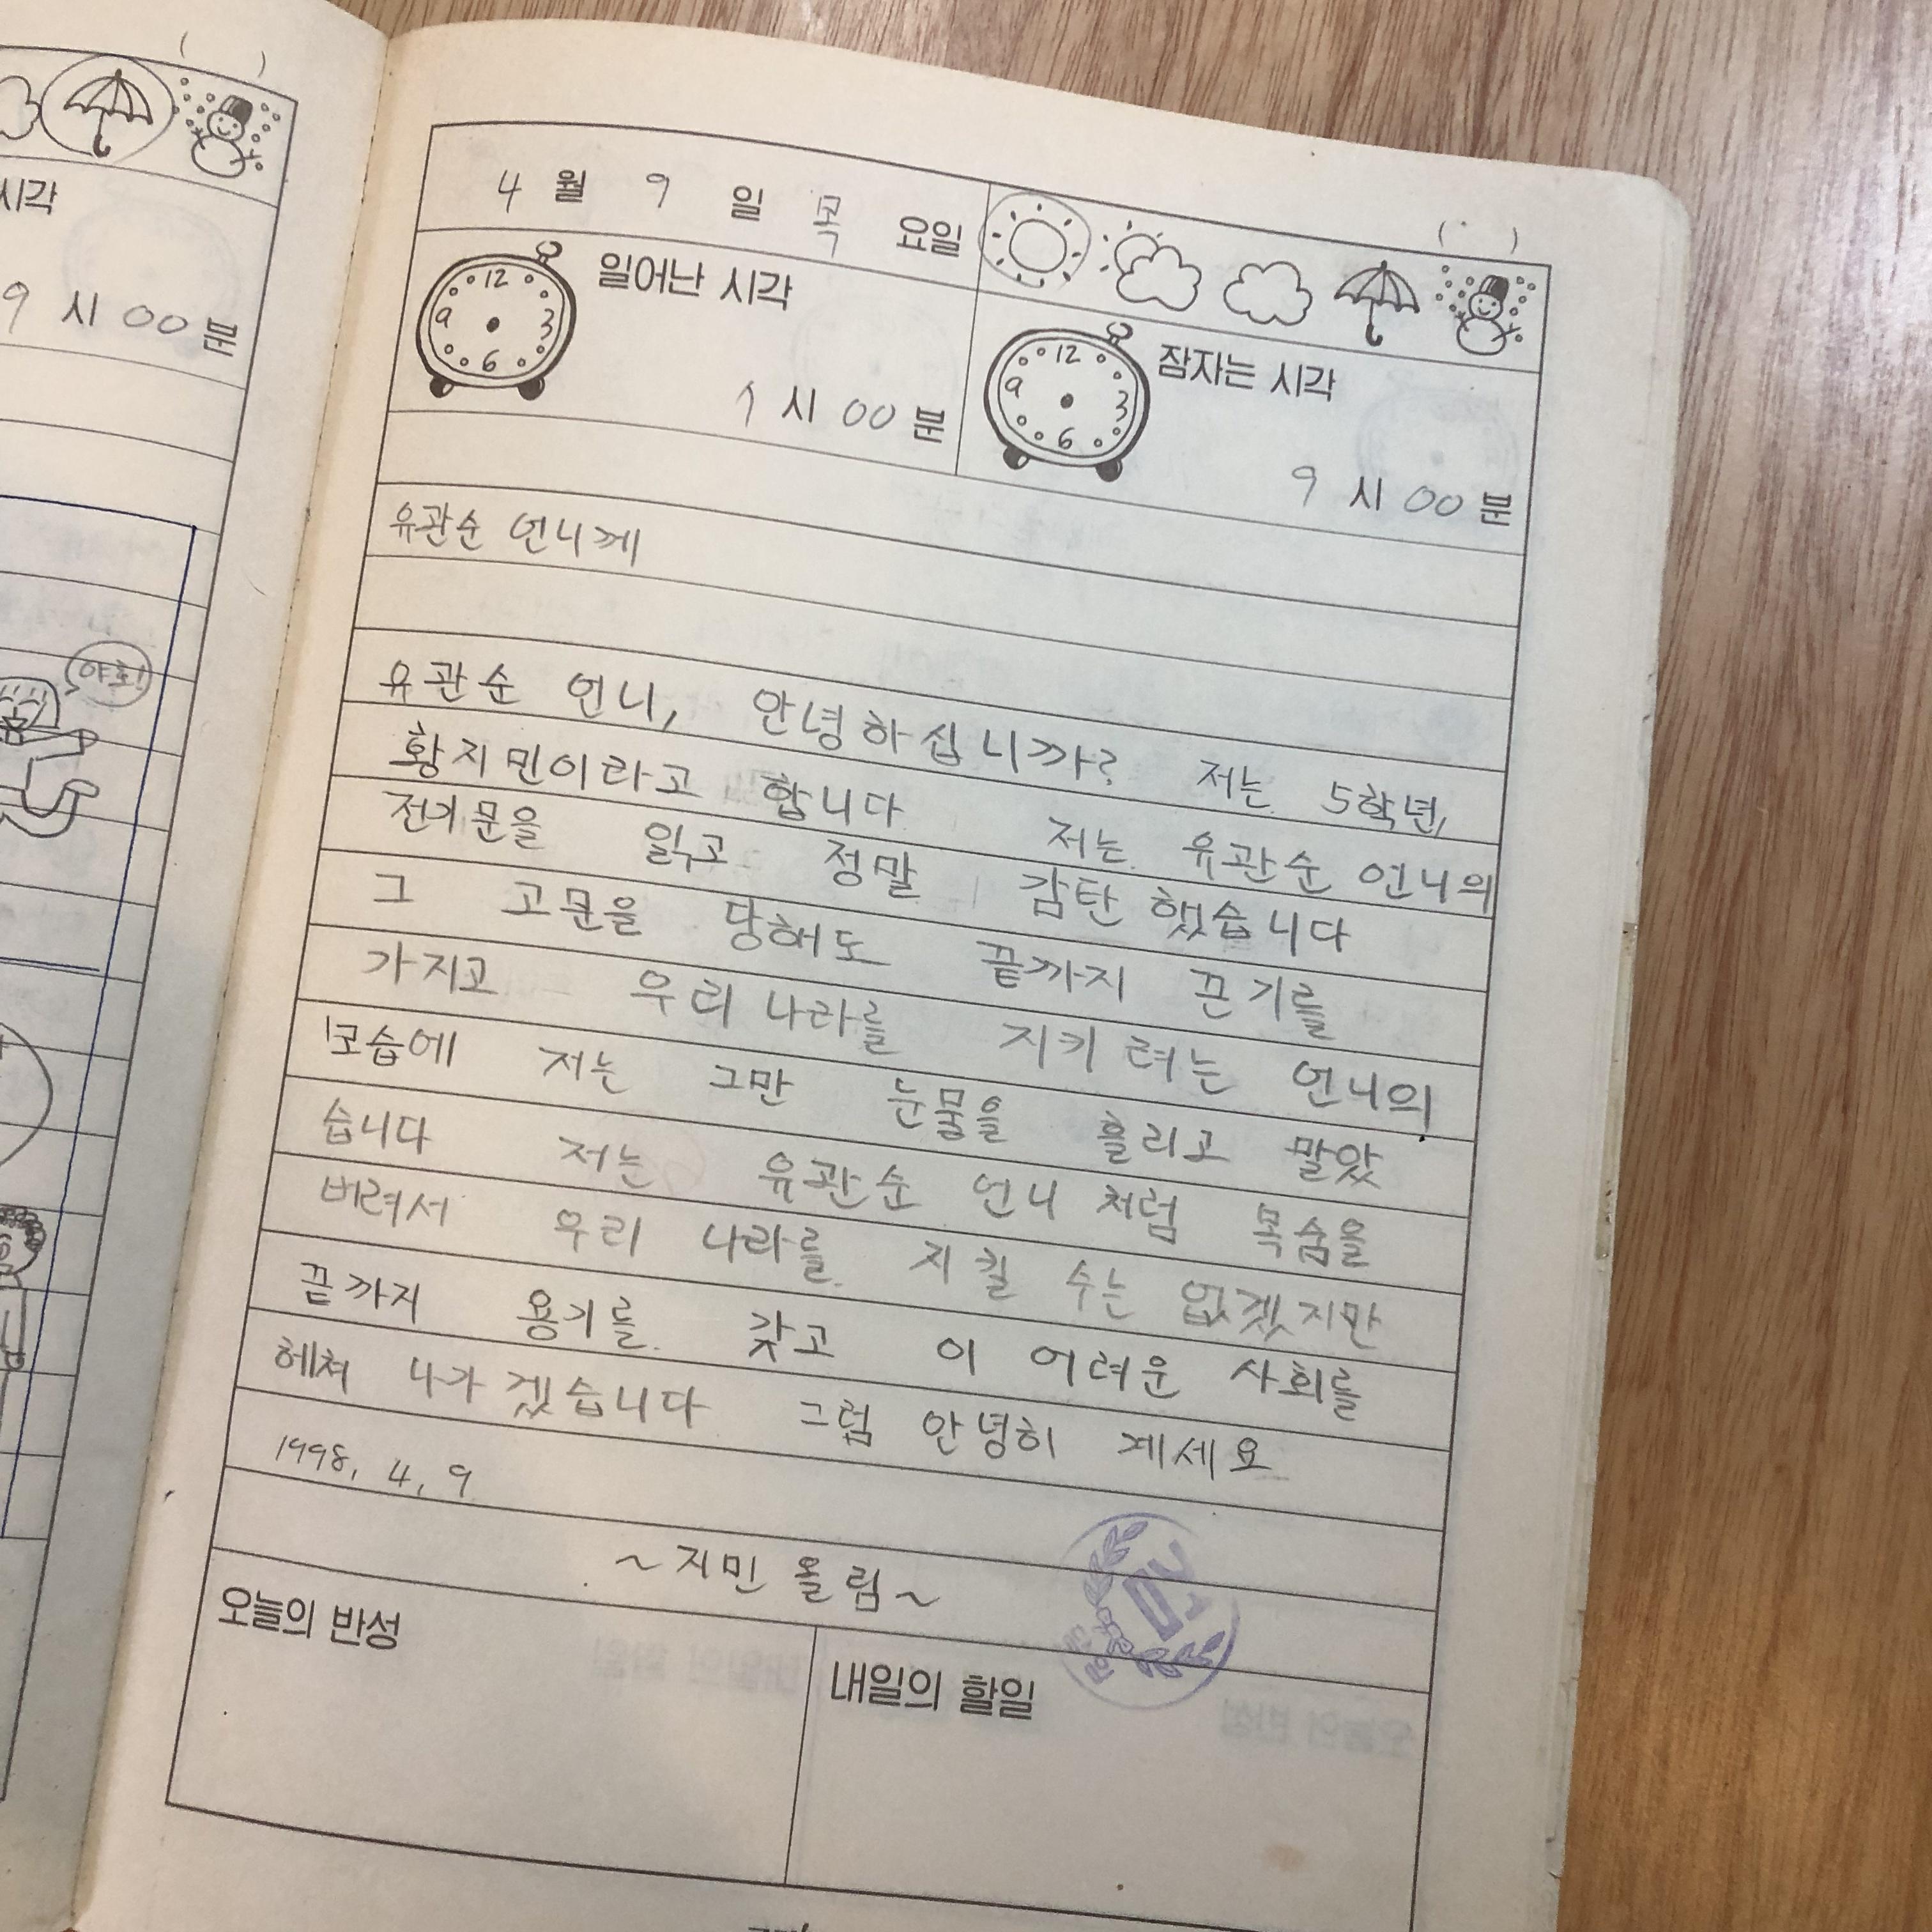 시각
9 시 00 분
야호!
4 월 9 일 목 요일
일어난 시각
시 00 분
잠자는 시각
9 시 00 분
12
3
6
9
12
3
6
9
유관순 언니께
유관순 언니, 안녕하십니까? 저는 5학년,
황지민이라고 합니다 저는 유관순 언니의
전기문을 읽고 정말 감탄했습니다
그 고문을 당해도 끝까지 끈기를
가지고 우리 나라를 지키려는 언니의
모습에 저는 그만 눈물을 흘리고 말았
습니다 저는 유관순 언니 처럼 목숨을
버려서 우리 나라를 지킬 수는 없겠지만
끝까지 용기를 갖고 이 어려운 사회를
헤쳐 나가겠습니다 그럼 안녕히 계세요
1998. 4. 9
~지민 올림~
검
오늘의 반성
내일의 할일